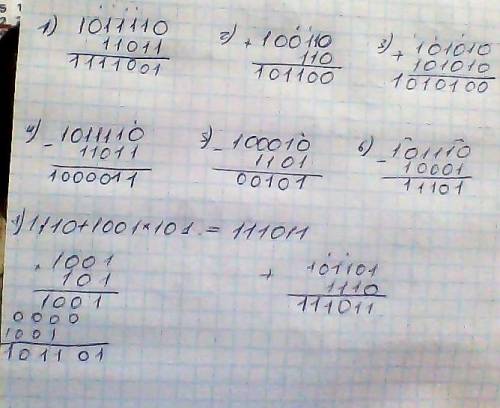 1) 1011110 2) + 100110 3) + 101010
11011 110 101010
1111001 101100 1010100
4) - 101110 5) - 100010 6) - 101110
11011 1101 10001
1000011 00101 11101
1) 1110+1001×101 = 111011
× 1001 + 101101
101 1110
1001 111011
0000
1001
101101